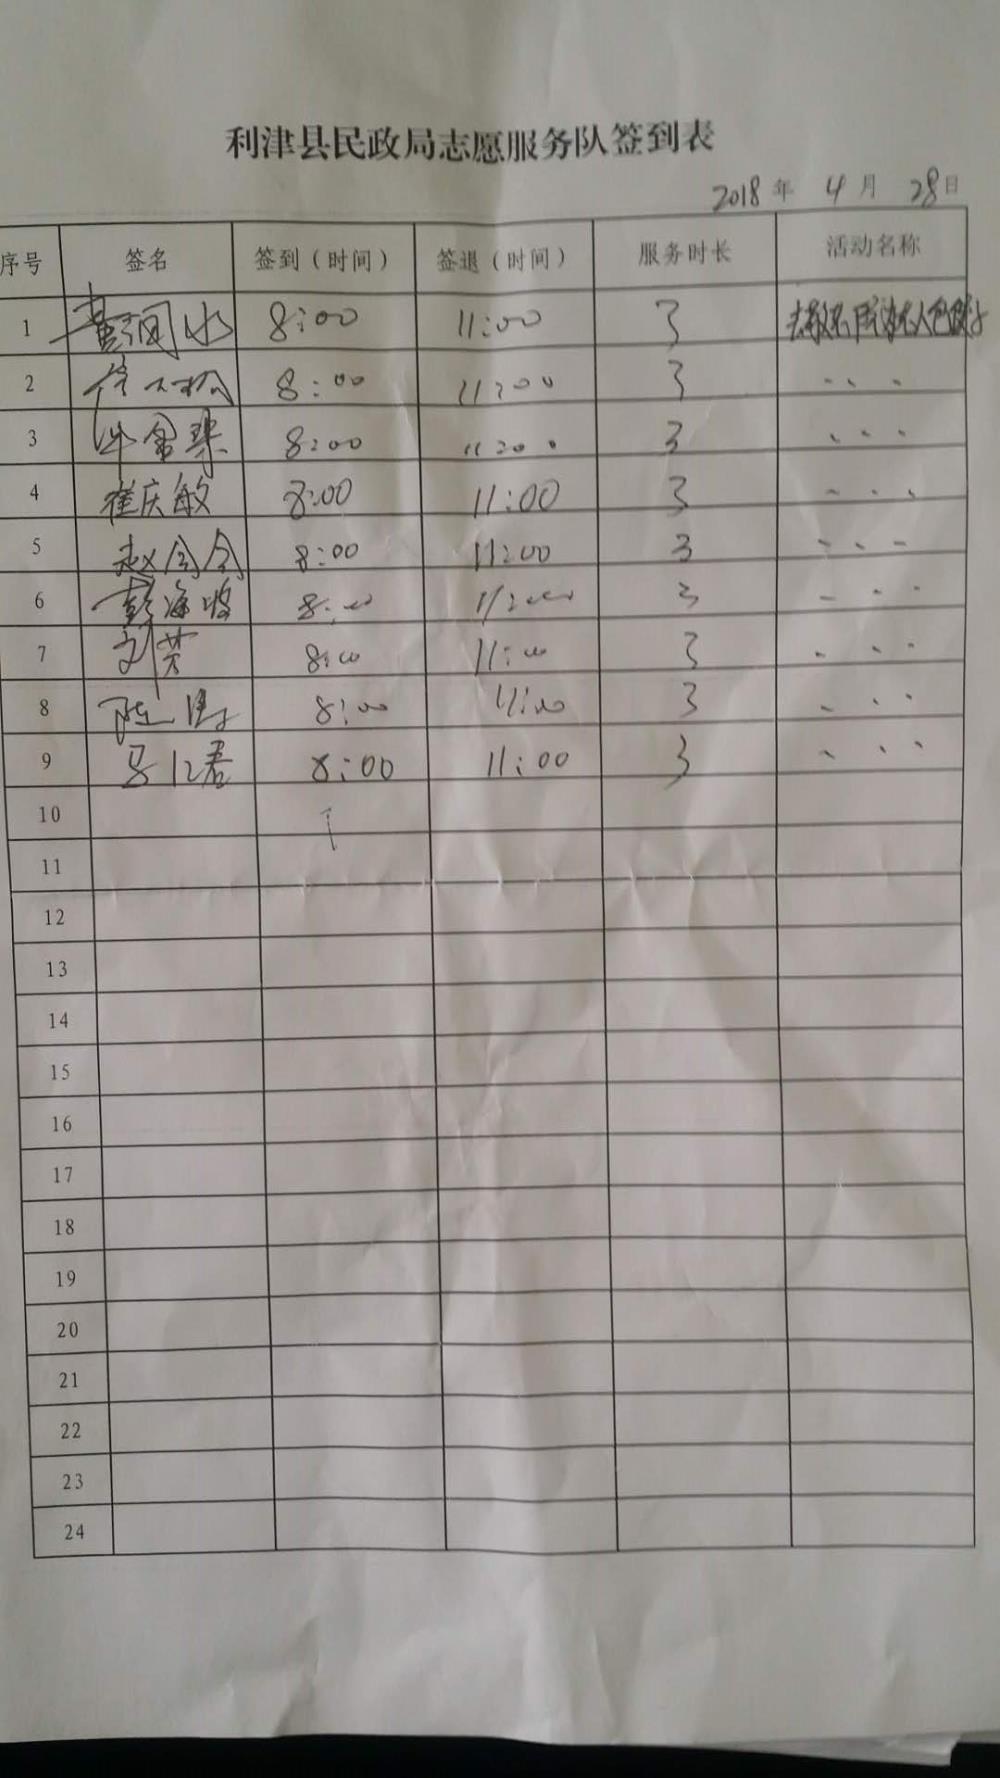 利津县民政局志愿服务队签到表
2018年 4月 28日
序号 签名 签到（时间） 签退（时间） 服务时长 活动名称
1 8:00 11:00 3
2 8:00 11:00 3
3 8:00 11:00 3
4 崔庆敏 8:00 11:00 3
5 8:00 11:00 3
6 彭海波 8:00 11:00 3
7 刘芳 8:00 11:00 3
8 8:00 11:00 3
9 8:00 11:00 3
10
11
12
13
14
15
16
17
18
19
20
21
22
23
24